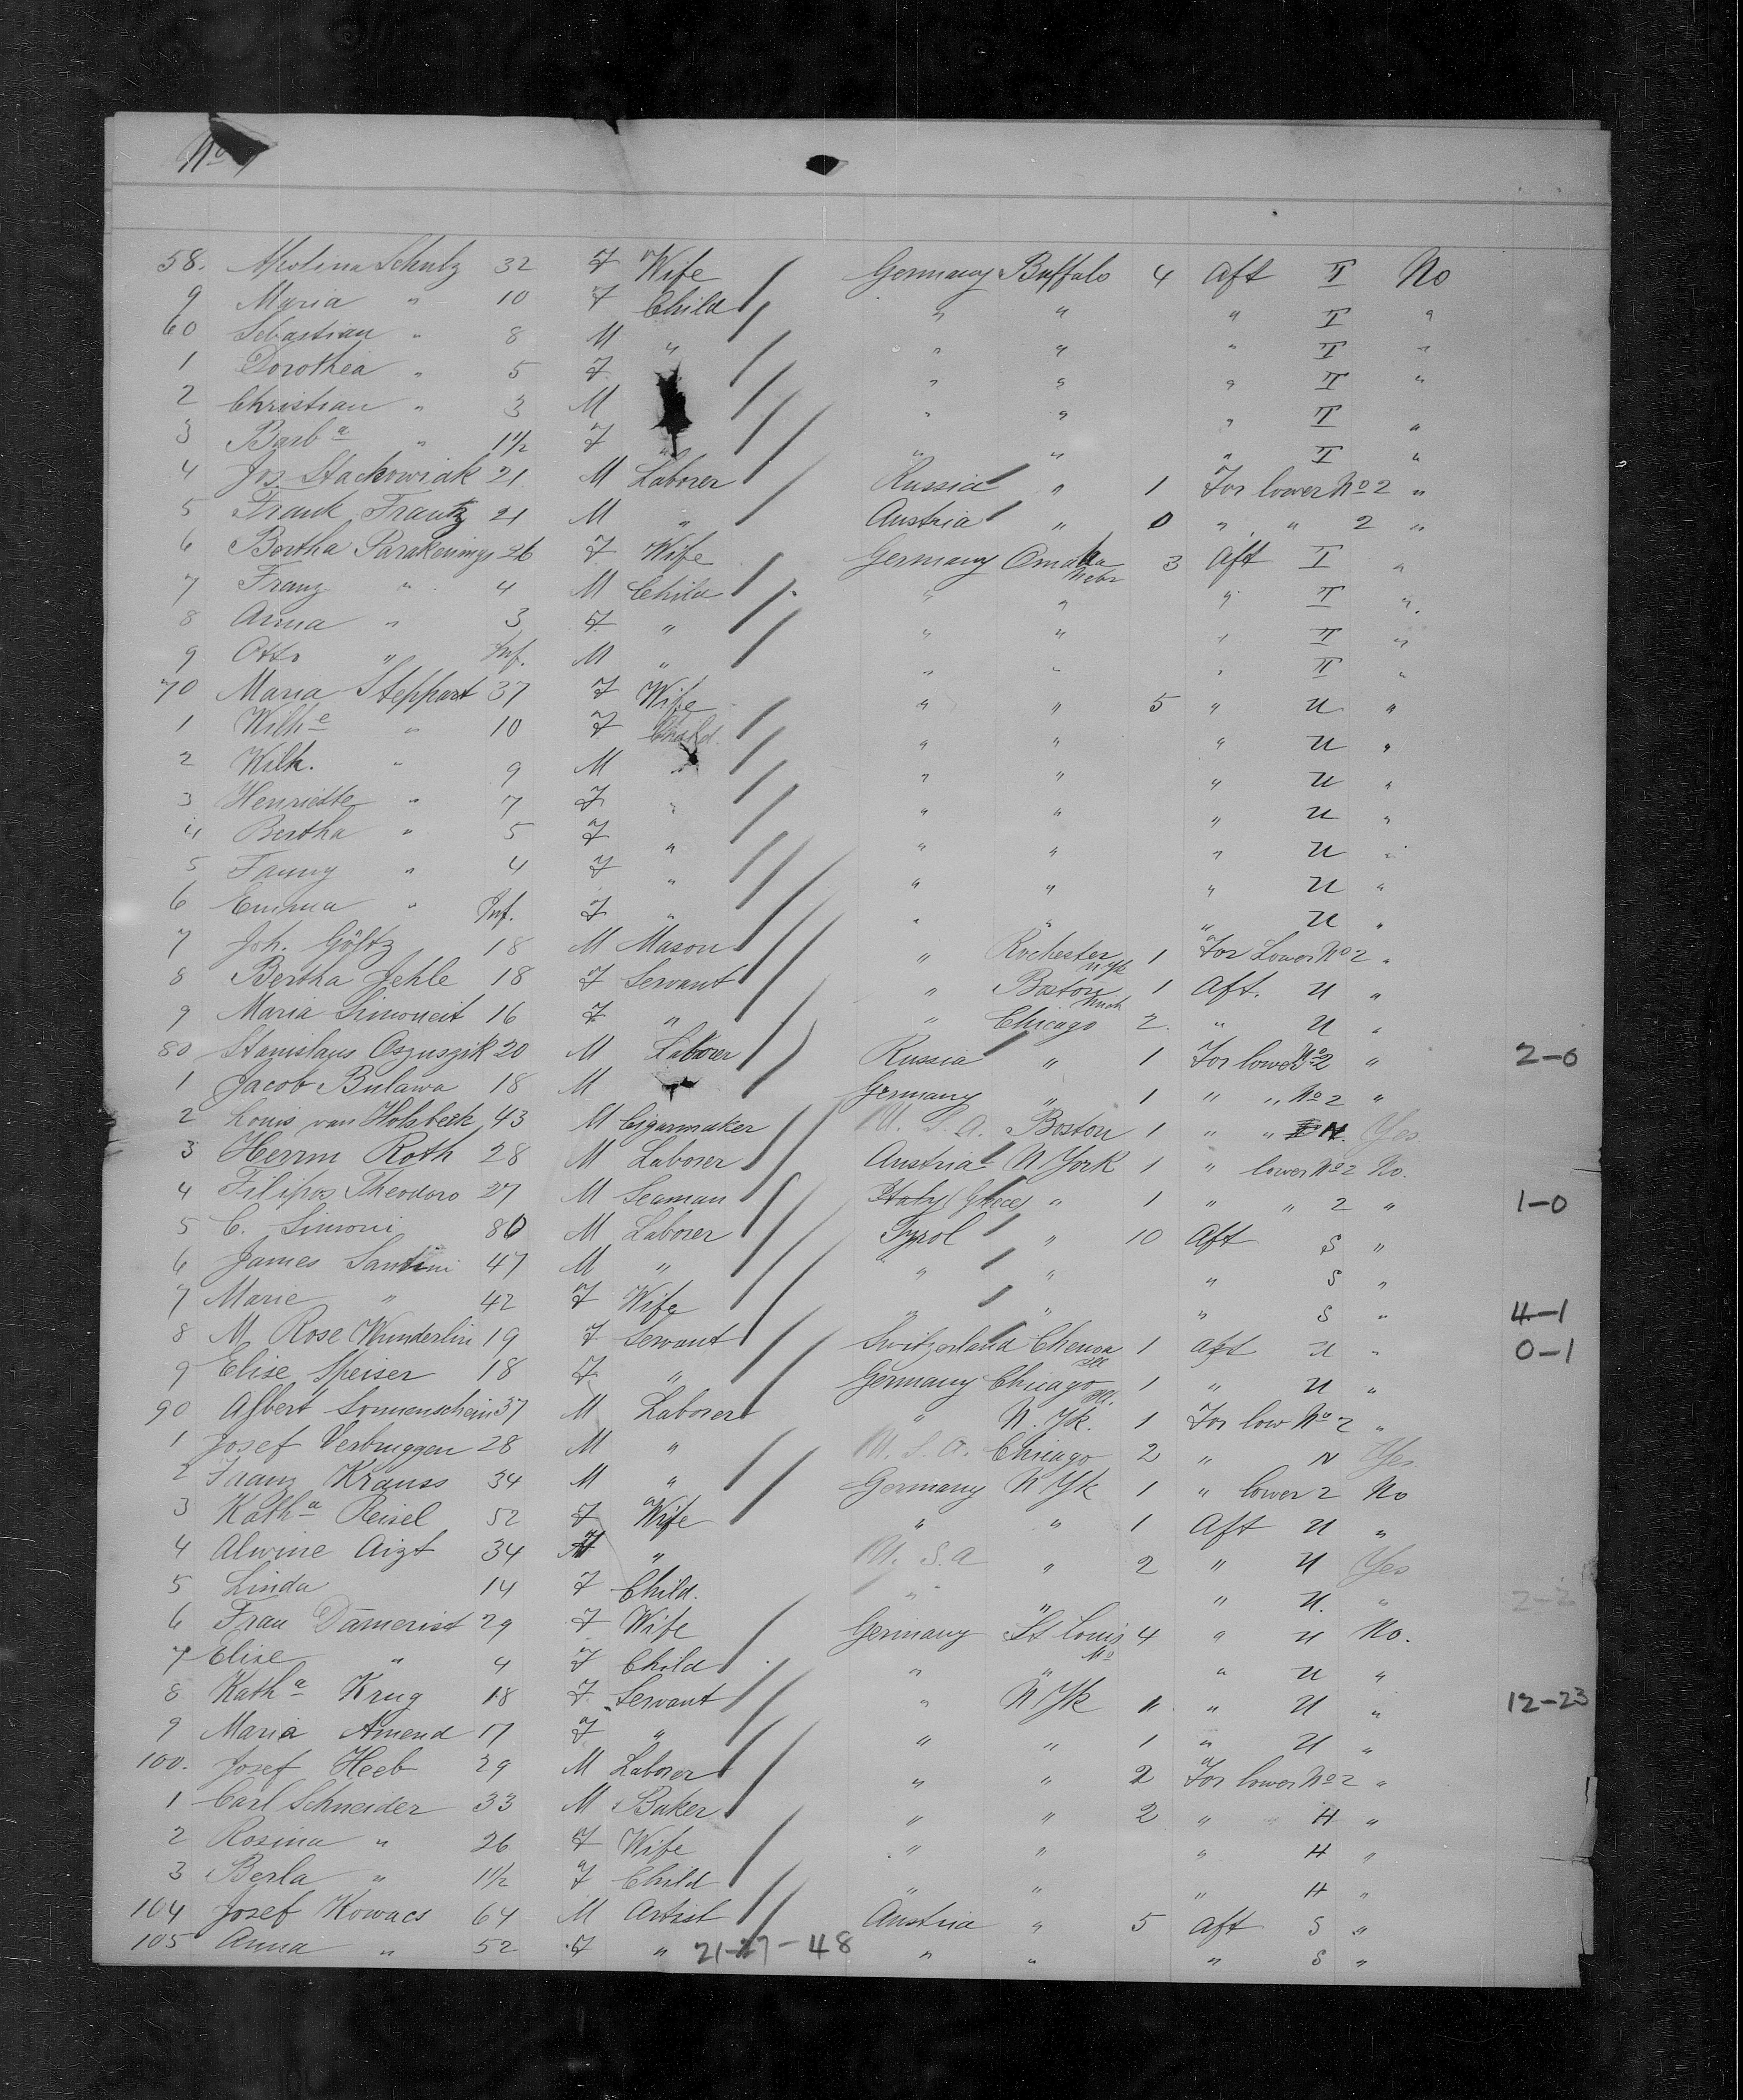 No
58. Apolina Schulz 32 F Wife Germany Buffalo 4 Aft II No
9 Maria " 10 F Child " " " II "
60 Sebastian " 8 M " " " " II "
1 Dorothea " 5 F " " " II "
2 Christian " 3 M " " " II "
3 Barba " 1 1/2 F " " " " II "
4 Jos. Stachowiak 21 M Laborer Russia " 1 For lower No 2 "
5 Frank Frantz 21 M " Austria " 0 " " 2 "
6 Bertha 26 F Wife Germany Omaha Nebr 3 Aft II "
7 Franz " 4 M Child " " " II "
8 Anna " 3 F " " " " II "
9 Otto " Inf. M " " " " II "
70 Maria Steppart 37 F Wife " " 5 " U "
1 Wilhe " 10 F Child " " " U "
2 Wilh. " 9 M " " " " U "
3 Henriette " 7 F " " " " U "
4 Bertha " 5 F " " " " U "
5 Fanny " 4 F " " " " U "
6 Emma " Inf. F " " " " U "
7 Joh. Göltz 18 M Mason " Rochester N Yk 1 For Lower No 2 "
8 Bertha Jehle 18 F Servant " Boston 1 Aft. U "
9 Maria Simoneit 16 F " " Chicago 2 " U "
80 Stanislaus Oszuszik 20 M Laborer Russia " 1 For lower No 2 " 2-0
1 Jacob Bulawa 18 M Germany " 1 " " No 2 "
2 Louis van Holsbeek 43 M Cigarmaker U. S. A. Boston 1 " " N. Yes
3 Herrm Roth 28 M Laborer Austria N York 1 " lower No 2 No.
4 Filipos Theodoro 27 M Seaman Italy Greece " 1 " " 2 " 1-0
5 C. Simoni 80 M Laborer Tyrol " 10 Aft S "
6 James Santini 47 M " " " " S "
7 Marie " 42 F Wife " " " S " 4-1
8 M. Rose Wunderlin 19 F Servant Switzerland Chenoa Ill 1 Aft U " 0-1
9 Elise Speiser 18 F " Germany Chicago Ill. 1 " U "
90 Albert Sonnenschein 37 M Laborer " N. Yk. 1 For low No 2 "
1 Josef Verbruggen 28 M " U. S. A. Chicago 2 " N Yes
2 Franz Krauss 34 M " Germany N Yk 1 " lower 2 No
3 Katha Reisel 52 F Wife " " 1 Aft U "
4 Alwine Aizt 34 " U. S. A " 2 " U Yes
5 Linda 14 F Child. " " " U. " 2-2
6 Frau Dämerist 29 F Wife Germany St Louis Mo 4 " U No.
7 Elise " 4 F Child " " " U "
8 Katha Krug 18 F Servant " N Yk 1 " U " 12-23
9 Maria Amend 17 F " " " 1 " U "
100. Josef Heeb 29 M Laborer " " 2 For lower No 2 "
1 Carl Schneider 33 M Baker " " 2 " H "
2 Rosina " 26 F Wife " " " H "
3 Berla " 1 1/2 F Child " " " H "
104 Josef Kowacs 64 M Artist Austria " 5 Aft S "
105 Anna " 52 F " 21-27-48 " " " S "